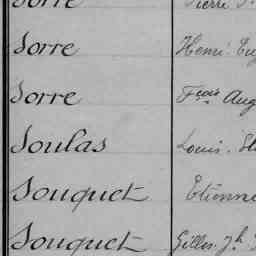 Sorre Pierre
Sorre Henri
Sorre Fçois Aug
Soulas Louis
Souquet Etienne
Souquet Gilles Jh